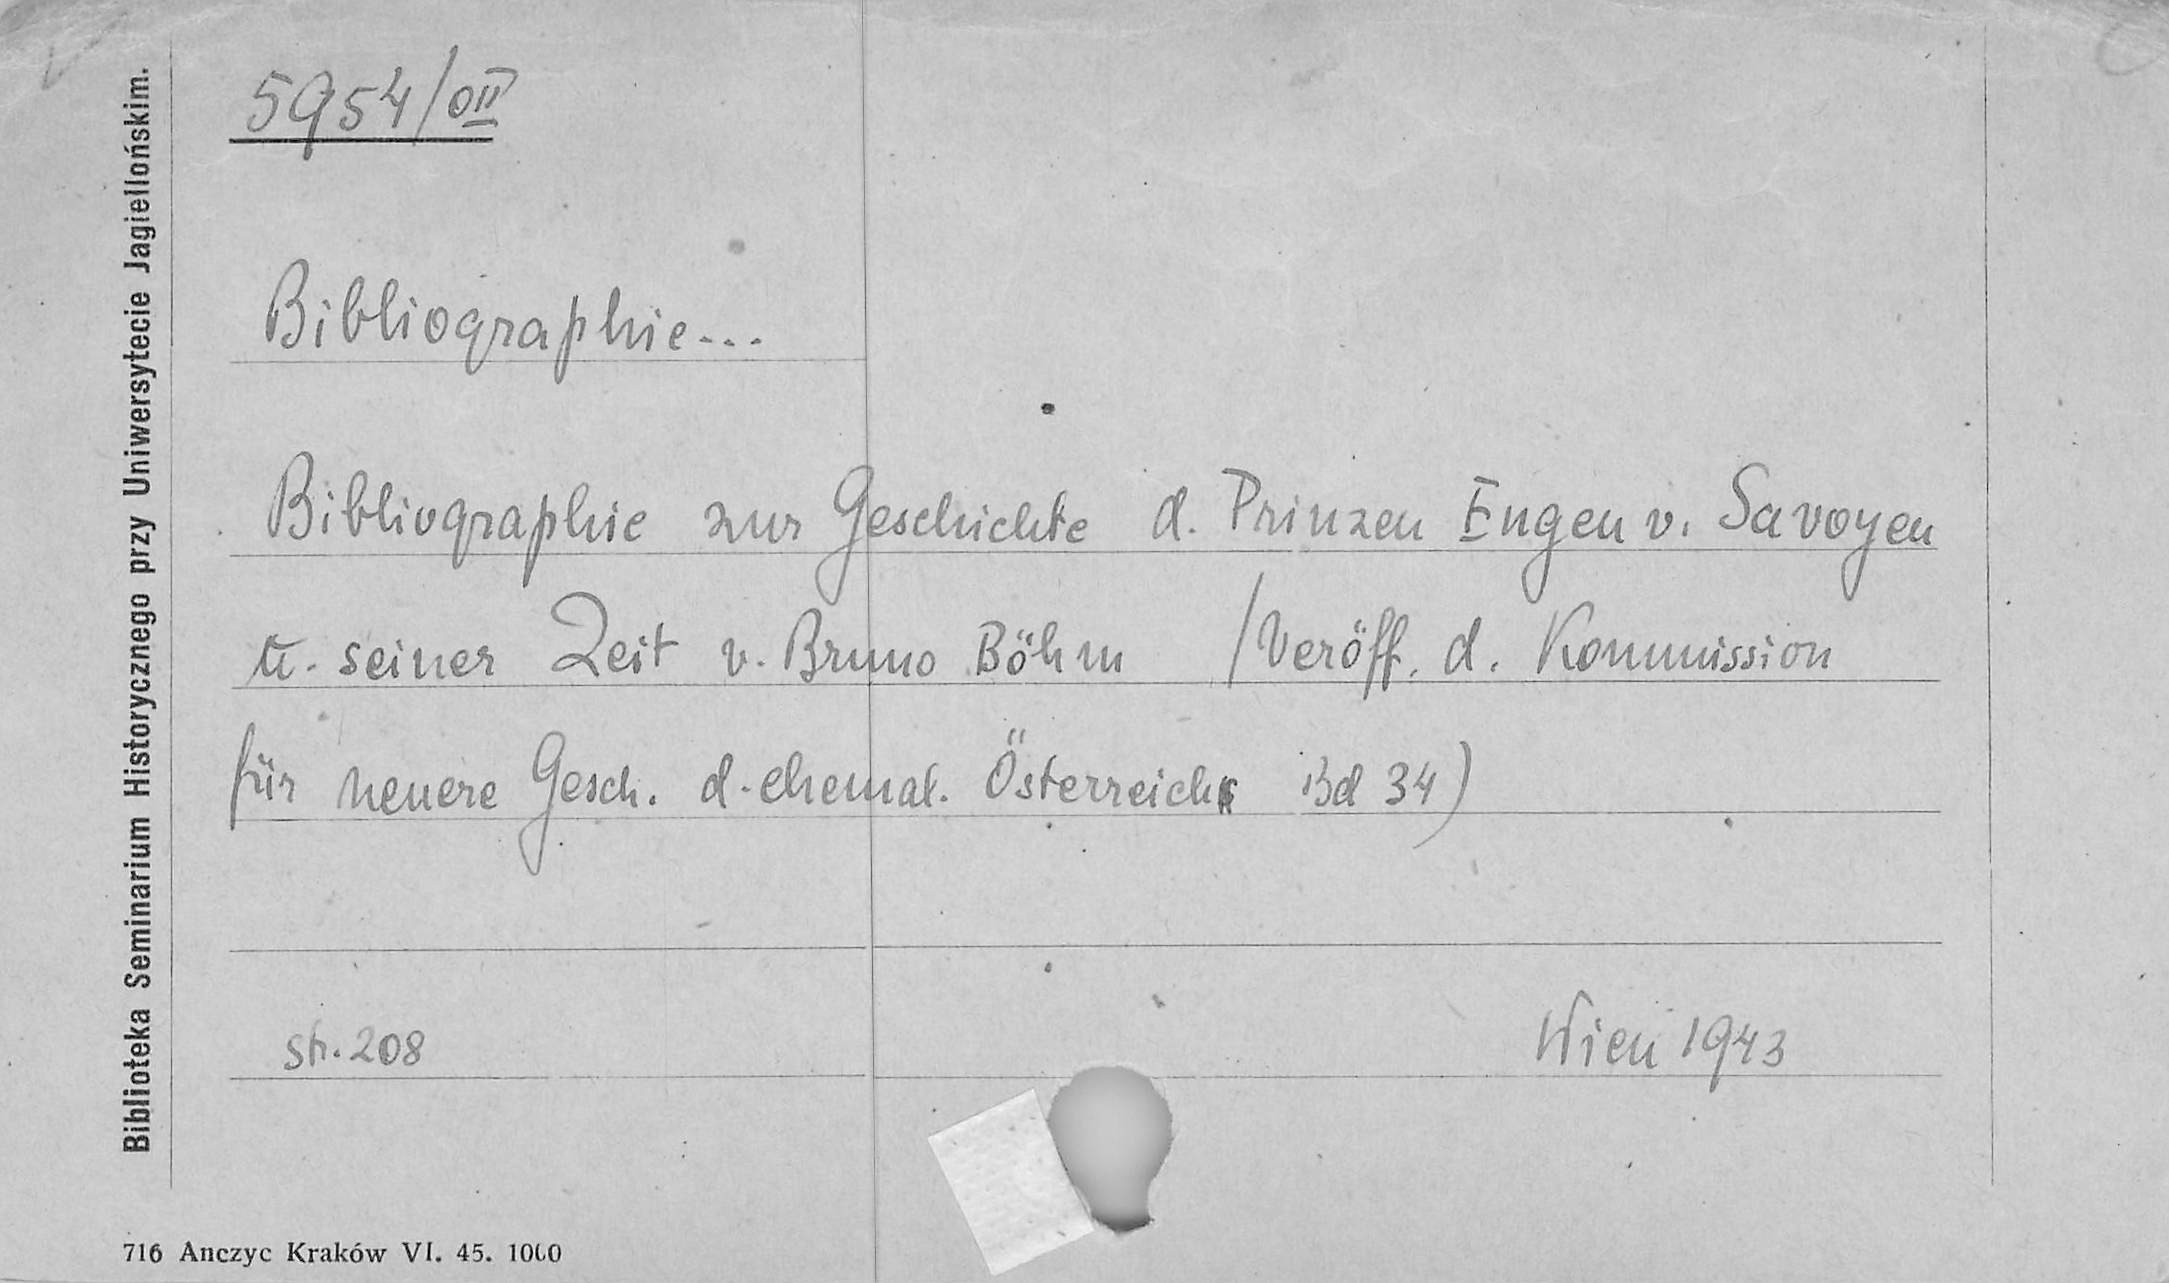 5954/0II
Bibliographie...
Bibliographie zur Geschichte d. Prinzen Eugen v. Savoyen
u. seiner Zeit v. Bruno Böhm /Veröff. d. Kommission
für neuere Gesch. d. ehemal. Österreichs Bd 34)
str. 208 Wien 1943
Biblioteka Seminarium Historycznego przy Uniwersytecie Jagiellońskim.
716 Anczyc Kraków VI. 45. 1000